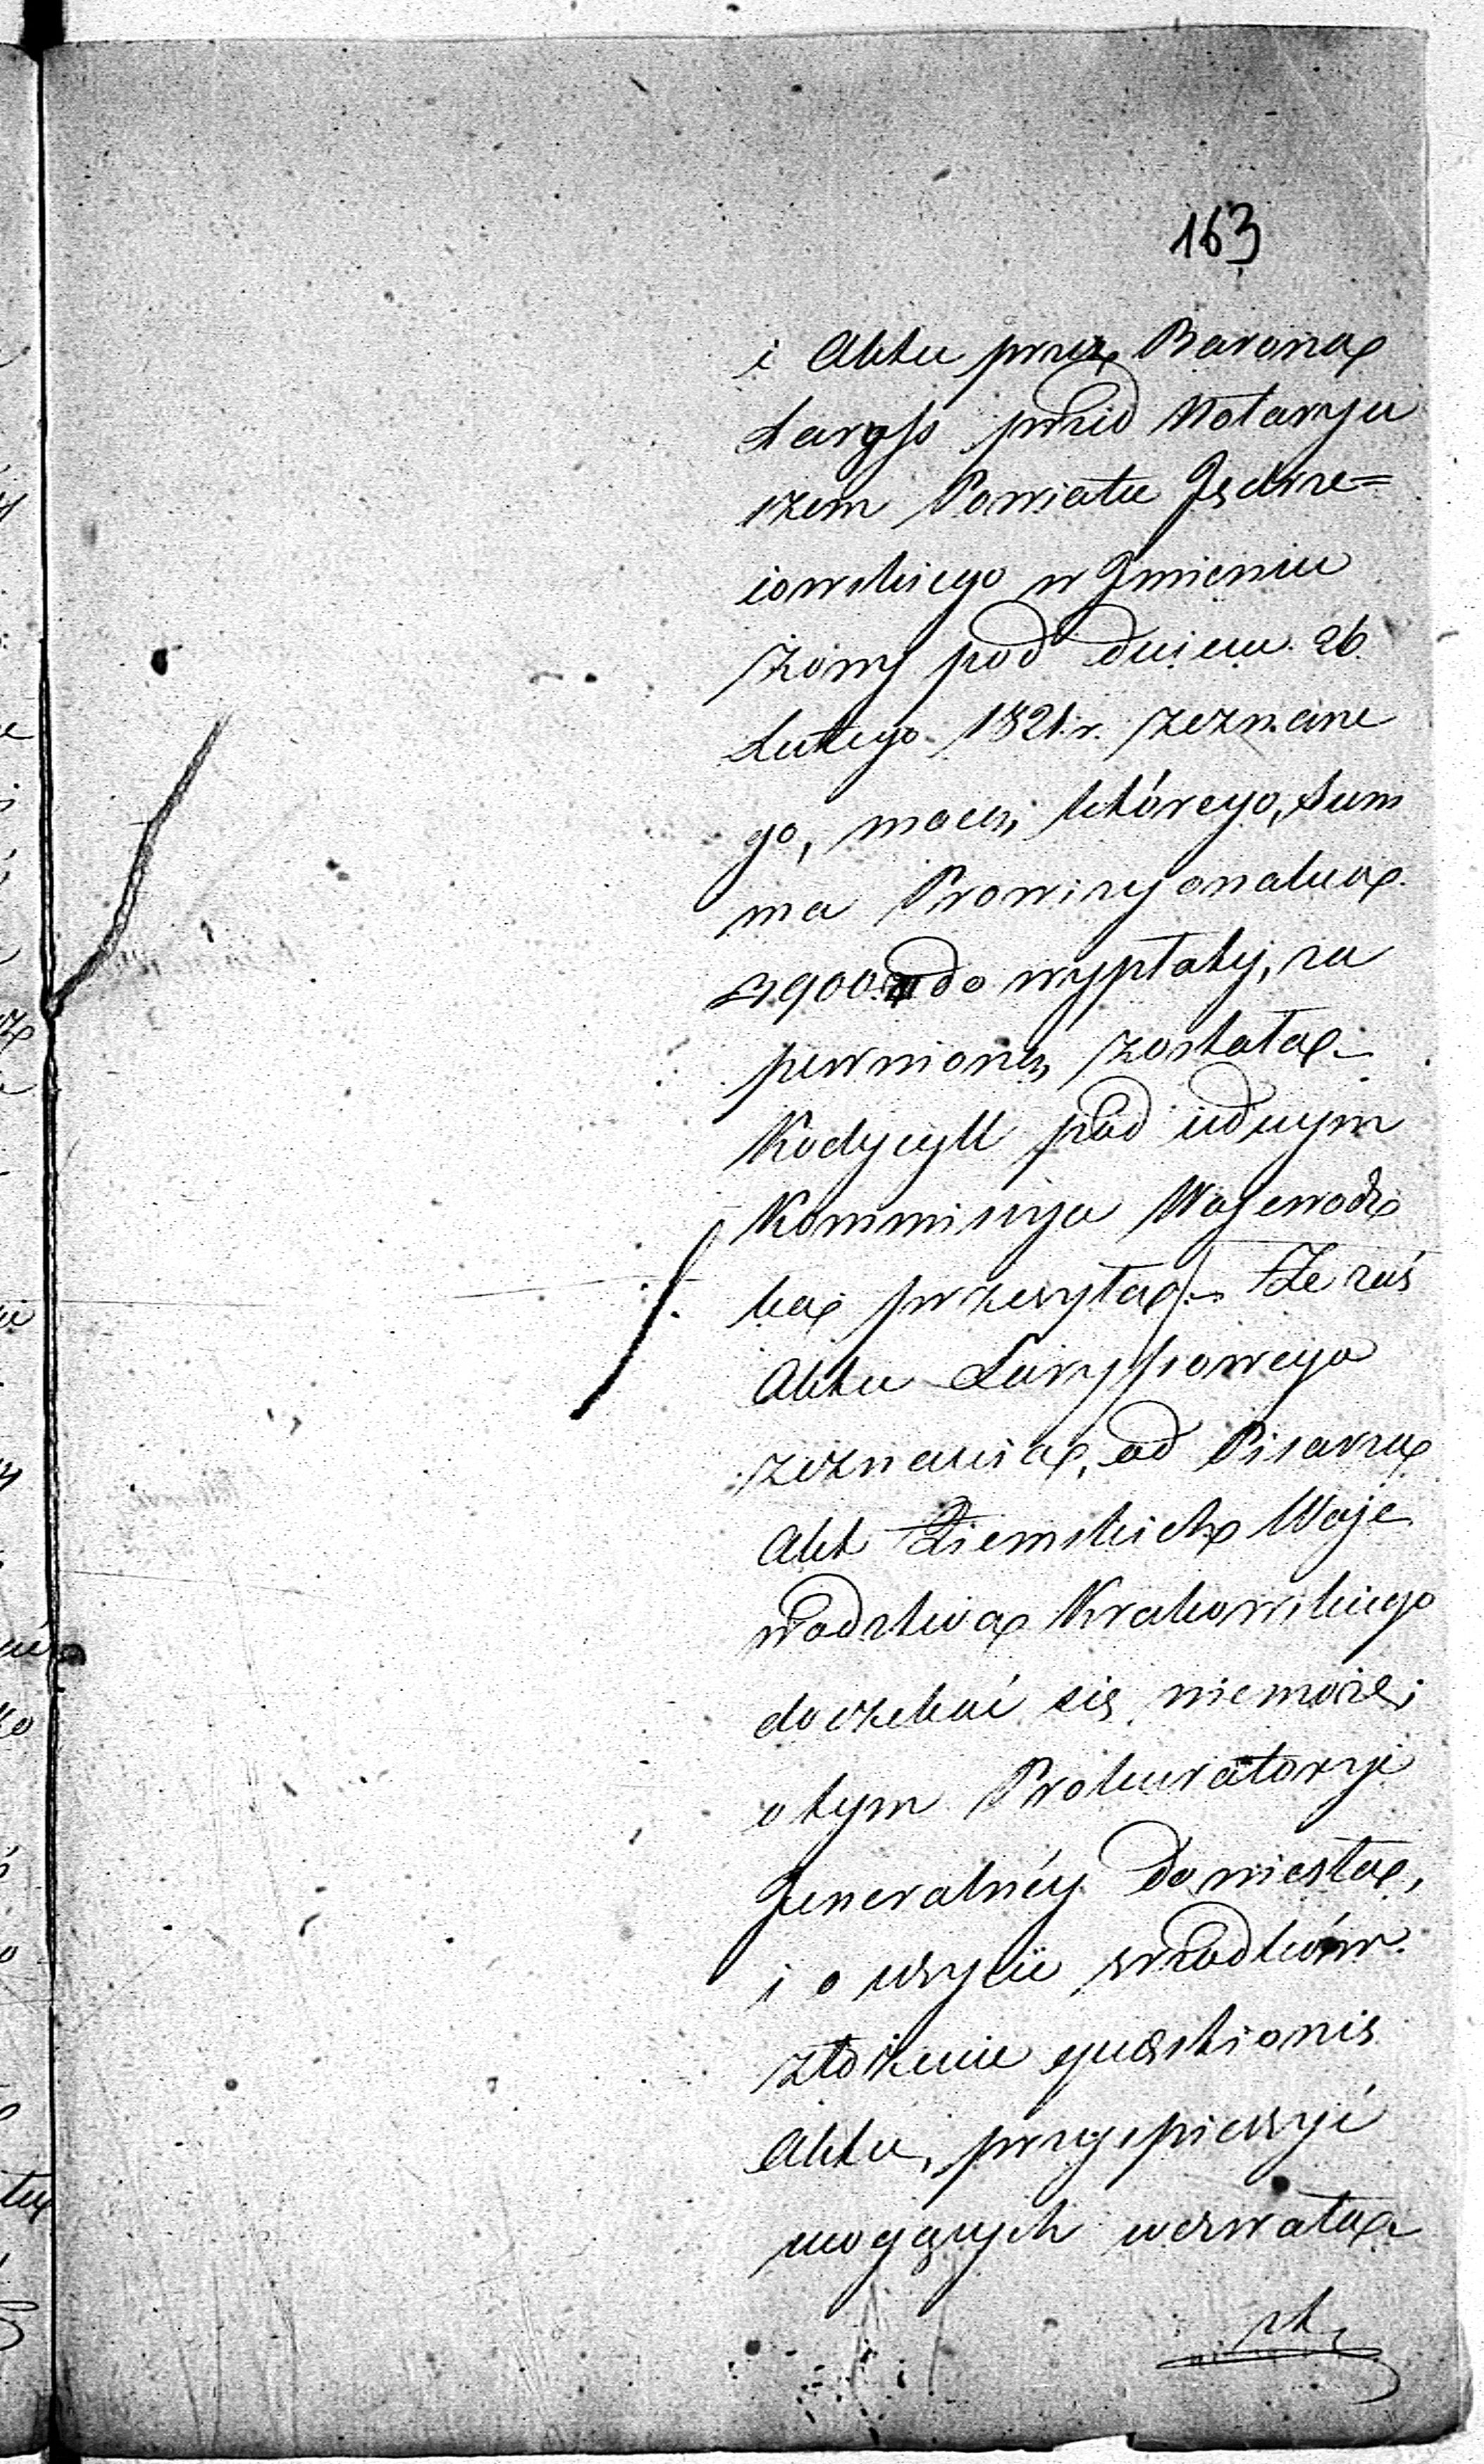 163
i Aktu przez Barona
Laryss przed Notaryu
szem Powiatu Jędrze=
iowskiego w Imieniu
żony pod dniem 26
Lutego 1821.r. zeznane
go, mocą którego, Sum
ma Prowizyonalna
do wypłaty, za
pewnioną została.
Kodycyll pod iednym
Kommissya Wojewodz
ka przesyła. Że zaś
Aktu Laryssowego
zeznania, od Pisarza
Akt Ziemskich Woje
wodztwa Krakowskiego
doczekać się niemoże,
o tym Prokuratoryi
Generalnéy doniosła,
i o użycie środków
złożenie quaestionis
Aktu, przyspieszyć
mogących wezwała